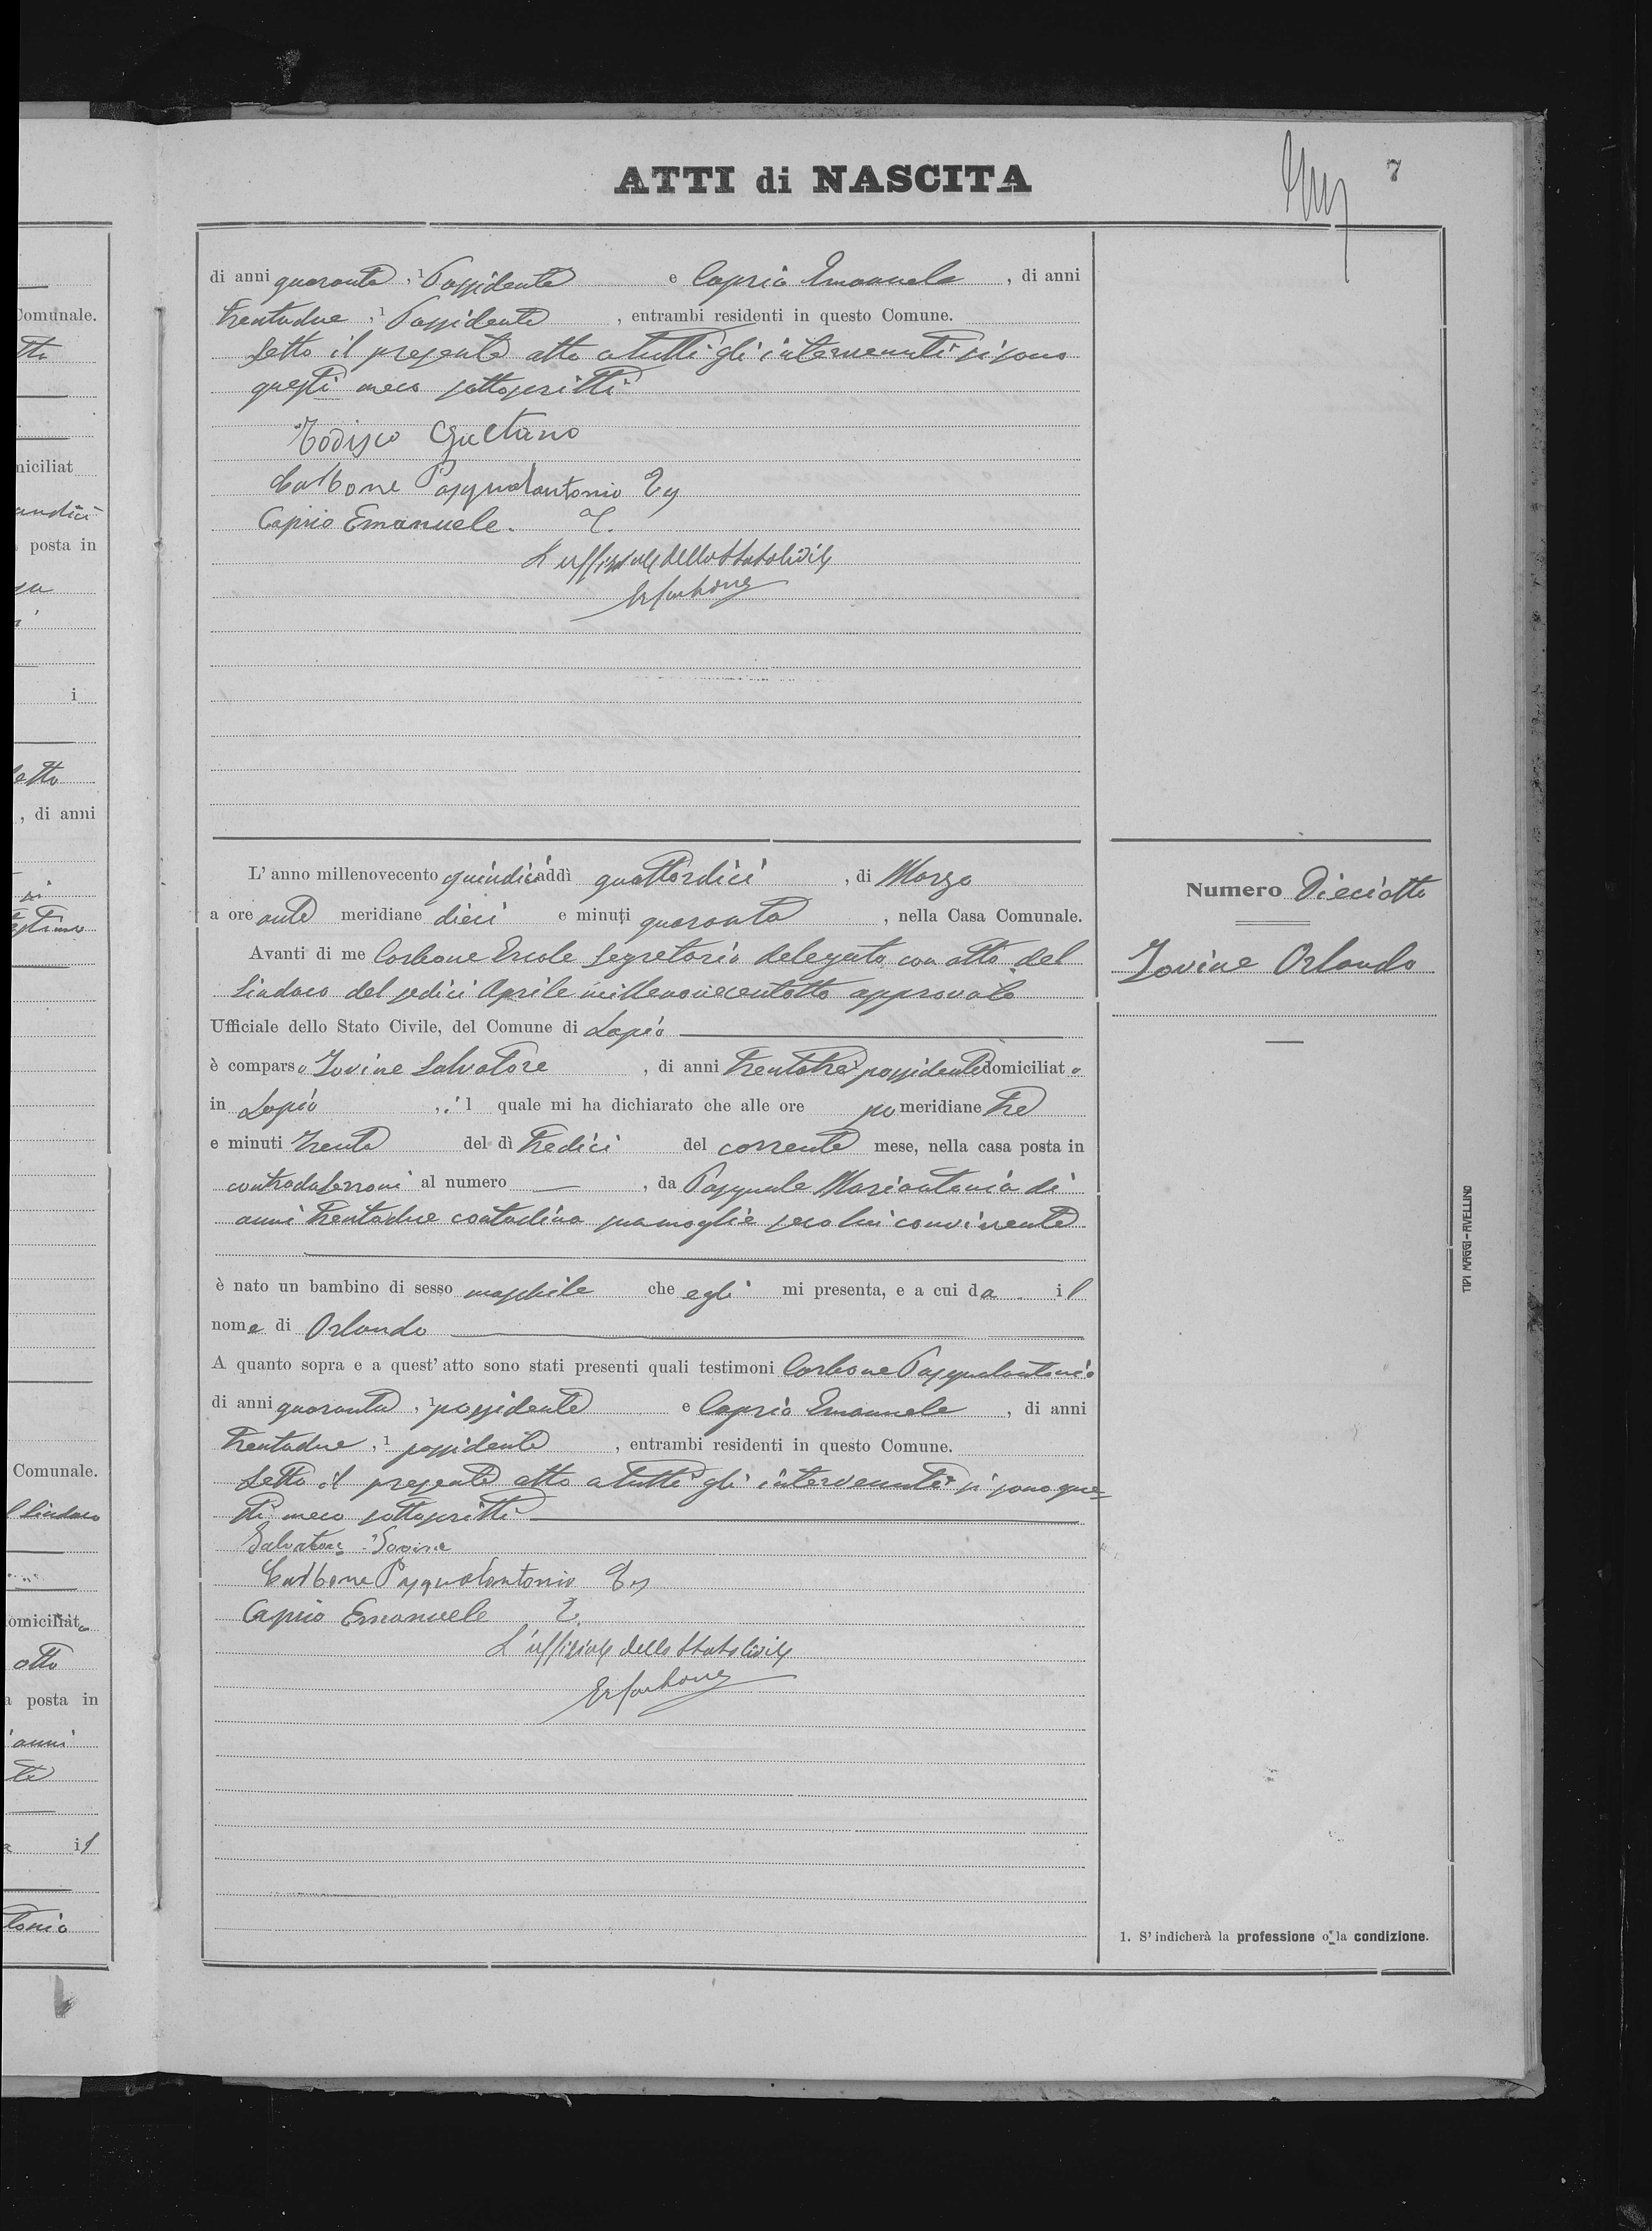 ATTI di NASCITA
7
di anni quaranta, 1 Possidente e Caprio Emanuele, di anni
trentadue, 1 Possidente, entrambi residenti in questo Comune.
Letto il presente atto a tutti gli intervenuti si sono
questi meco sottoscritti
Todisco Gaetano
Carbone Pasqualantonio Ts
Caprio Emanuele. T.
L'uffiziale dello Stato Civile
ErCarbone
L'anno millenovecento quindici addì quattordici, di Marzo
a ore ante meridiane dieci e minuti quaranta, nella Casa Comunale.
Avanti di me Carbone Ercole Segretario delegato con atto del
Sindaco del sedici Aprile millenovecentotto approvato
Ufficiale dello Stato Civile, del Comune di Lapio
è comparso Iovine Salvatore, di anni trentatre 1 possidente domiciliato
in Lapio, il quale mi ha dichiarato che alle ore pomeridiane tre
e minuti trenta del dì tredici del corrente mese, nella casa posta in
contrada Serroni al numero —, da Pasquale Mariantonia di
anni trentadue contadina sua moglie seco lui convivente
è nato un bambino di sesso maschile che egli mi presenta, e a cui da il
nome di Orlando
A quanto sopra e a quest'atto sono stati presenti quali testimoni Carbone Pasqualantonio
di anni quaranta, 1 possidente e Caprio Emanuele, di anni
trentadue, 1 possidente, entrambi residenti in questo Comune.
Letto il presente atto a tutti gli intervenuti si sono que=
sti meco sottoscritti
Salvatore Iovine
Carbone Pasqualantonio Ts
Caprio Emanuele T.
L'uffiziale dello Stato Civile
ErCarbone
Numero Dieciotto
Iovine Orlando
TIPI MAGGI-AVELLINO
1. S'indicherà la professione o la condizione.
Comunale.
tto
miciliat
undici
posta in
i
etto
, di anni
Comunale.
l Sindaco
omiciliato
otto
a posta in
anni
te
il
tonio